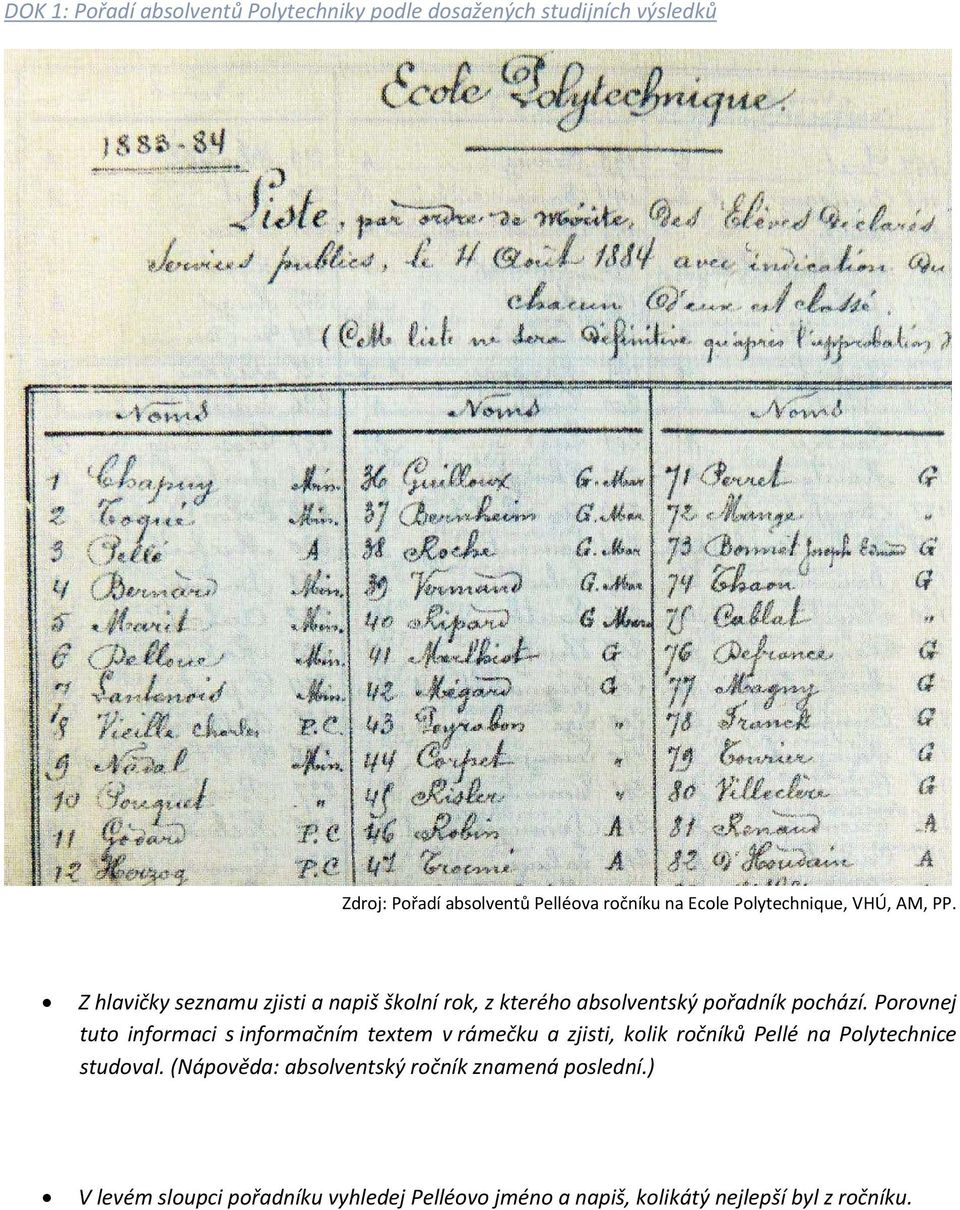 DOK 1: Pořadí absolventů Polytechniky podle dosažených studijních výsledků
Ecole Polytechnique.
1883-84
Liste, par ordre de mérite, des Elèves Déclarés
Services publics, le 4 Août 1884 avec indication du
chacun d'eux est classé.
(Cette liste ne sera définitive qu'après l'approbation d
Noms Noms Noms
1 Chapuy Min. 36 Guilloux G. Mar 71 Perret G
2 Toqué Min. 37 Bernheim G. Mar 72 Mange "
3 Pellé A 38 Roche G. Mar 73 Bonnet Joseph Edmond G
4 Bernard Min. 39 Vermand G. Mar 74 Thaon G
5 Marit Min. 40 Ripard G Mar. 75 Cablat "
6 Pelloue Min. 41 Marlhiot G 76 Defrance G
7 Lantenois Min. 42 Mégard G 77 Magny G
8 Vieille Charles P.C. 43 Peyrabon " 78 Franck G
9 Nadal Min. 44 Corpet " 79 Tourier G
10 Pouquet " 45 Risler " 80 Villeclère G
11 Godard P.C 46 Robin A 81 Renaud A
12 Herzog P.C 47 Trocmé A 82 D'Houdain A
Zdroj: Pořadí absolventů Pelléova ročníku na Ecole Polytechnique, VHÚ, AM, PP.
• Z hlavičky seznamu zjisti a napiš školní rok, z kterého absolventský pořadník pochází. Porovnej
tuto informaci s informačním textem v rámečku a zjisti, kolik ročníků Pellé na Polytechnice
studoval. (Nápověda: absolventský ročník znamená poslední.)
• V levém sloupci pořadníku vyhledej Pelléovo jméno a napiš, kolikátý nejlepší byl z ročníku.